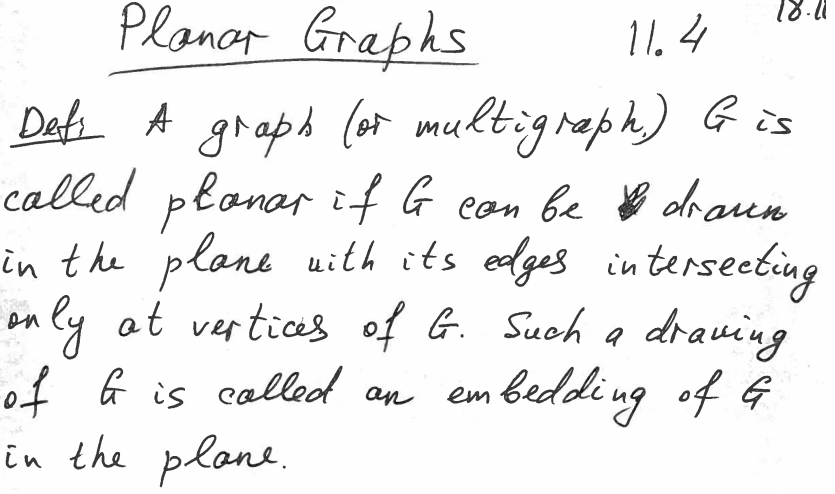 Planar Graphs 11.4
Def: A graph (or multigraph) G is
called planar if G can be drawn
in the plane with its edges intersecting
only at vertices of G. Such a drawing
of G is called an embedding of G
in the plane.